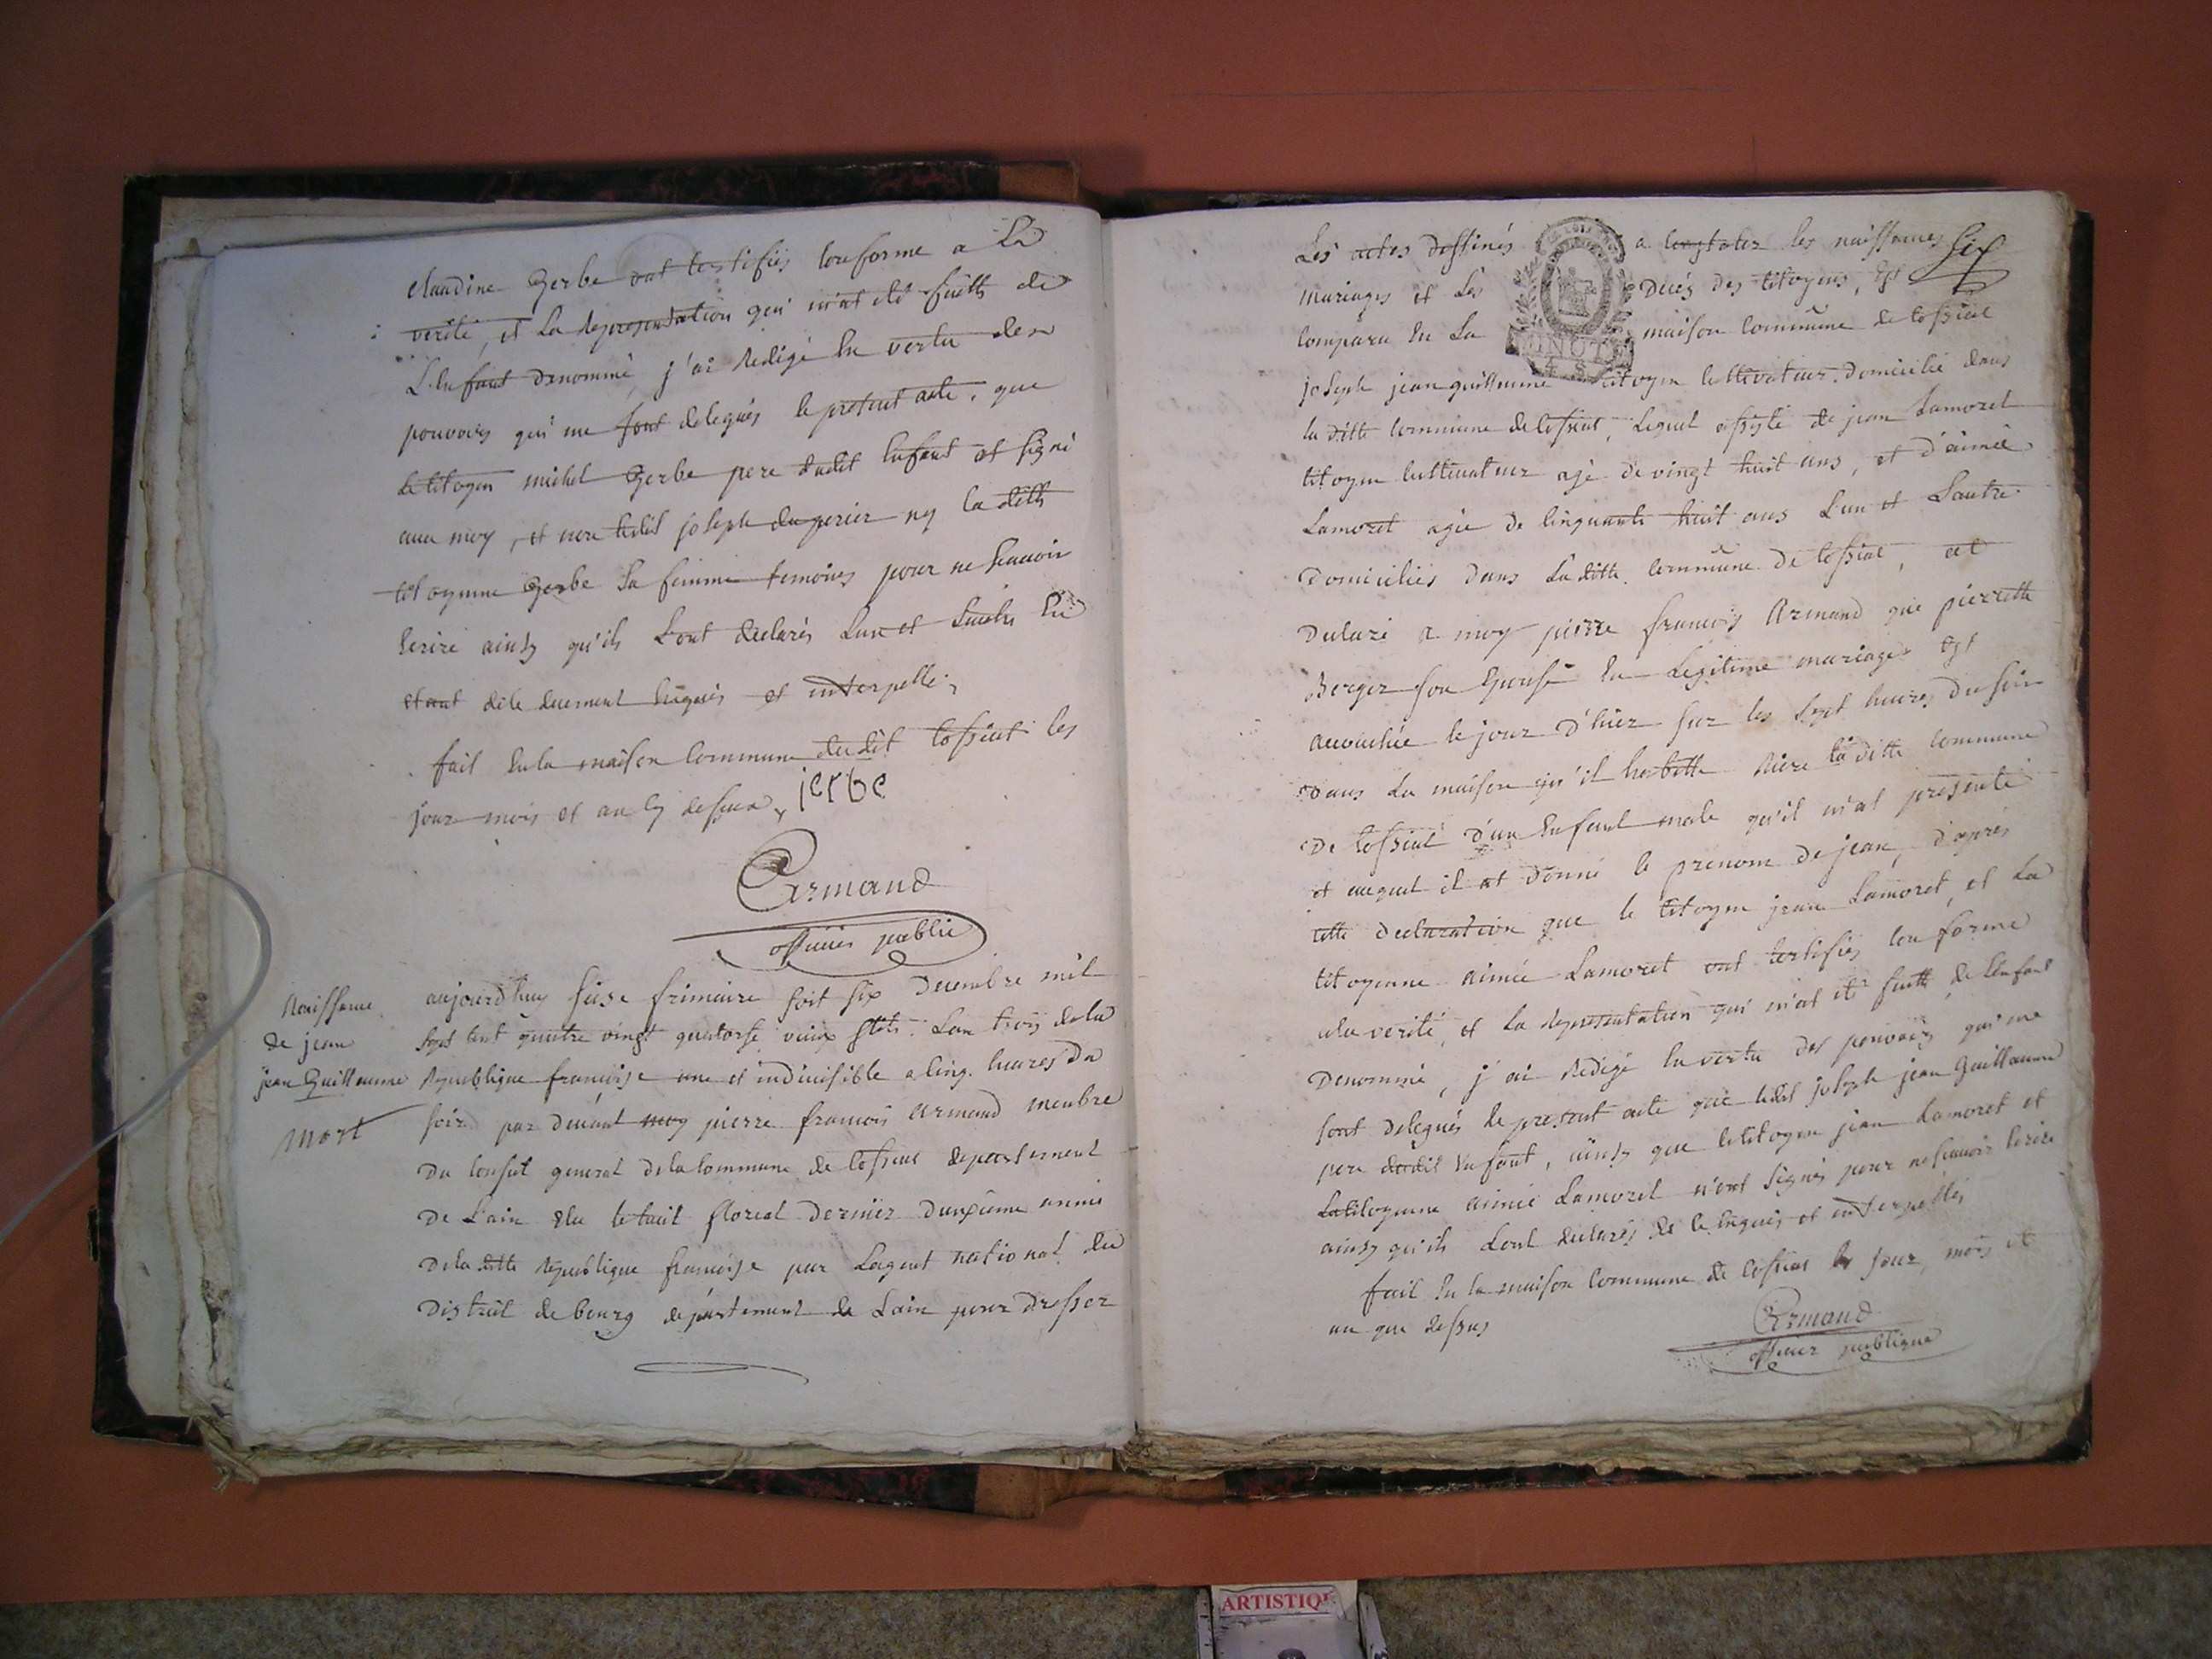 Claudine Gerbe ont certifiés conforme a La
verité, et La Representation qui m'at été faitte de
L'Enfant denommé, j'ai Redigé En vertu des
pouvoirs qui me sont delegués le present acte, que
le citoyen michel Gerbe pere dudit Enfant et signé
avec moy, et non ledit joseph duperier ny la ditte
citoyenne Gerbe sa femme temoins pour ne scavoir
Ecrire ainsy qu'ils L'ont declarés L'un et L'autre En
etant de ce duement Enquis et interpellé
fait En la maison Commune dudit Cossiat les
jour mois et an cy dessus jerbe
Armand
officier public
Naissance
de jean
jean Guillaume
Mort
aujourd'huy seise frimaire soit six Decembre mil
Sept Cent quatre vingt quatorse vieux stile. L'an trois de la
Republique francoise une et indivisible a Cinq heures Du
soir par devant moy pierre francois Armand membre
Du Conseil general de la Commune de Cossiat departement
De L'ain Elu le huit floreal Dernier Deuxieme année
De la ditte Republique francoise par L'agent national du
District de bourg departement de L'ain pour Dresser
Les actes destinés a Constater les naissances six
Mariages et Les Decés des Citoyens, Est
Comparu En La maison Commune de Cossiat
joseph jean guillaume Citoyen Cultivateur Domicilié dans
la ditte Commune de Cossiat, Lequel assisté de jean Lamoret
Citoyen Cultivateur agé de vingt huit ans, et d'aimée
Lamoret agée de Cinquante huit ans L'un et L'autre
Domiciliés Dans La ditte Commune De Cossiat, at
Declaré a moy pierre francois Armand que pierrette
Berger son Epouse En Legitime mariage Est
accouchée le jour D'hier sur les Sept heures Du soir
Dans La maison qu'il habitte Riere la ditte Commune
De Cossiat D'un Enfant male qu'il m'at presenté
et auquel il at Donné le prenom De jean, d'aprés
Cette declaration que le Citoyen jean Lamoret, et La
Citoyenne aimée Lamoret ont Certifiés Conforme
a la verité, et La Representation qui m'at été faitte de L'enfant
Denommé, j'ai Redigé En vertu des pouvoirs qui me
sont delegués le present acte que ledit joseph jean Guillaume
pere dudit Enfant, ainsy que le Citoyen jean Lamoret et
La Citoyenne aimée Lamoret n'ont Signés pour ne scavoir Ecrire
ainsy qu'ils L'ont declarés de ce Enquis et interpellés
fait En la maison Commune de Cossiat les jour, mois et
an que dessus
Armand
officier publique
MINUTE
4. S.
ARTISTIQ